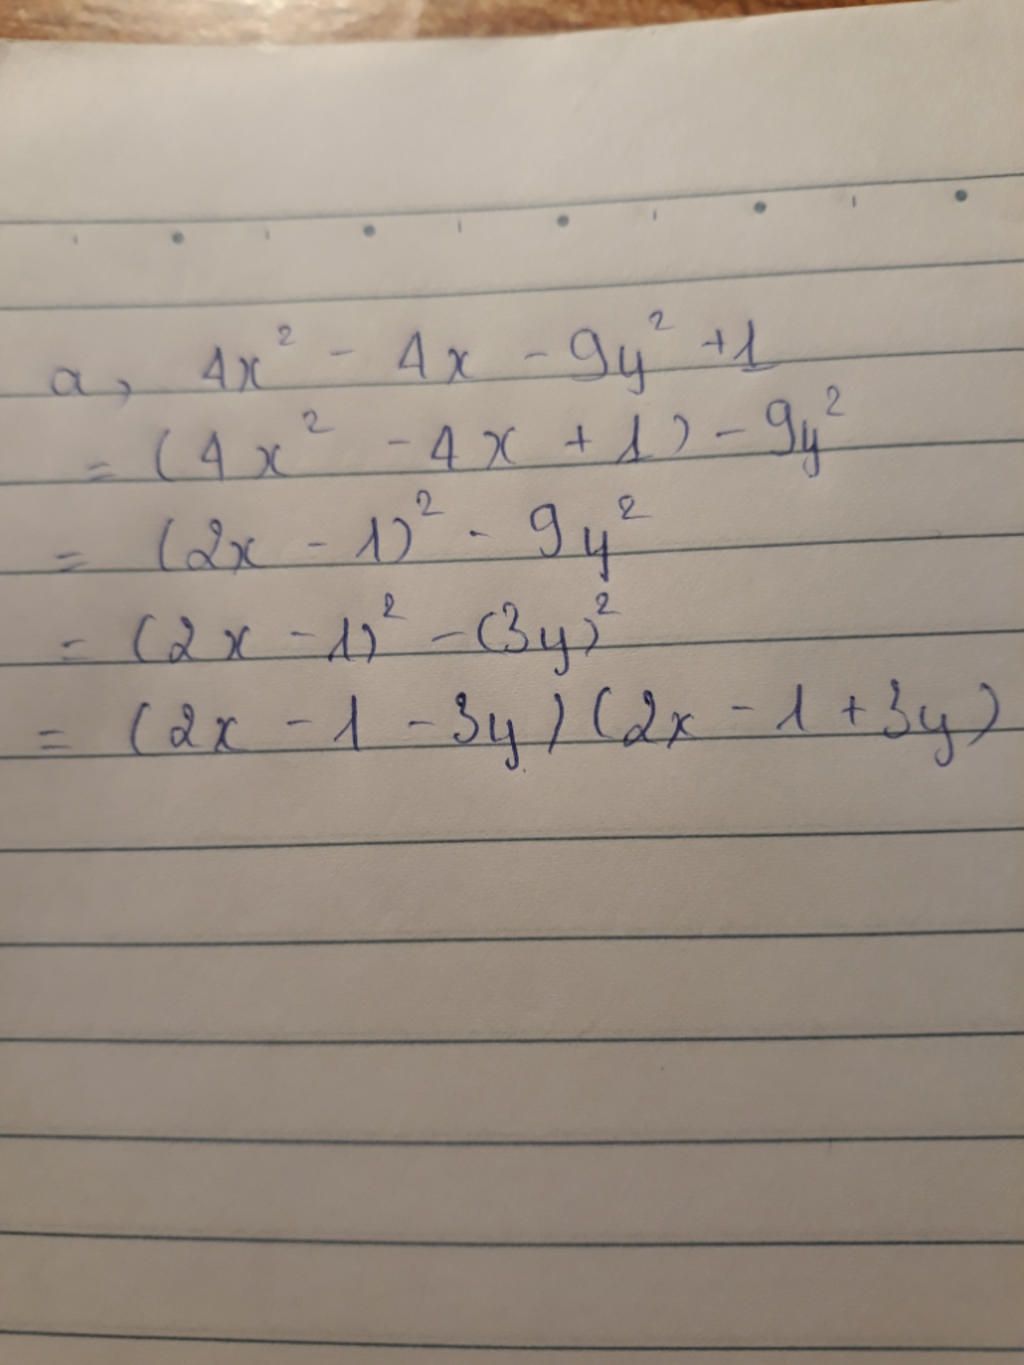 a, 4x² - 4x - 9y² + 1
= (4x² - 4x + 1) - 9y²
= (2x - 1)² - 9y²
= (2x - 1)² - (3y)²
= (2x - 1 - 3y)(2x - 1 + 3y)